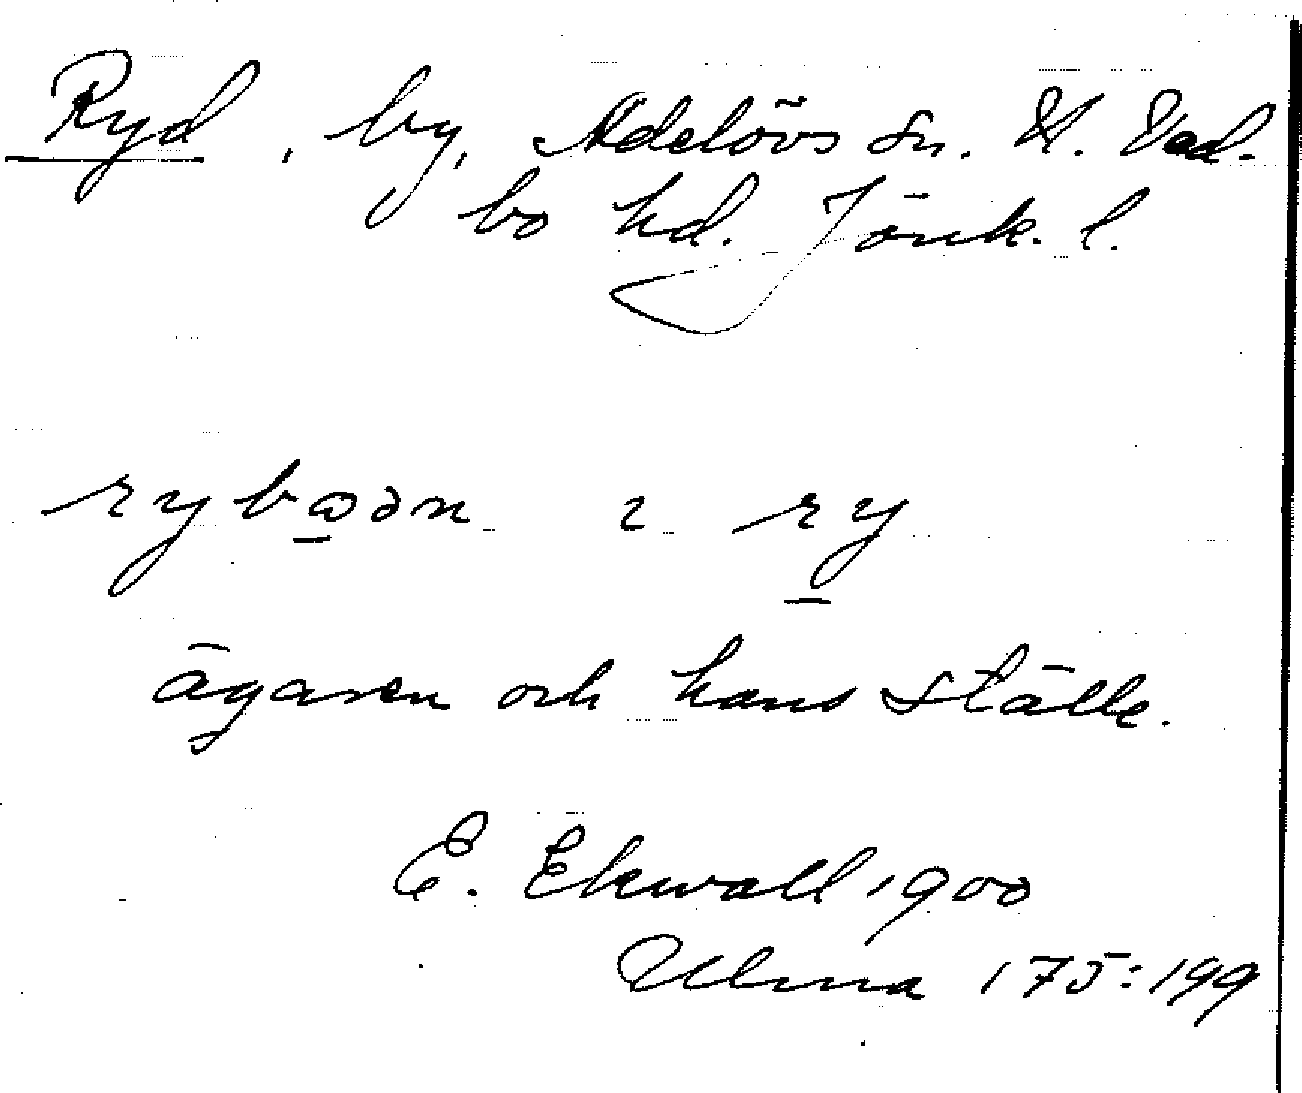 Ryd, by, Adelövs sn. N. Vad-
bo hd. Jönk. l.
rybωən ı ry
ägaren och hans ställe.
E. Ekwall 1900
Ulma 175:199